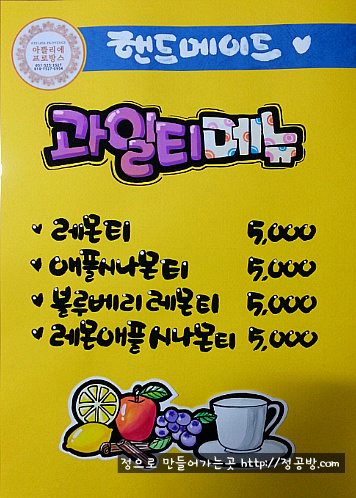 아뜰리에
프로방스
핸드메이드
과일티메뉴
레몬티 5,000
애플시나몬티 5,000
블루베리레몬티 5,000
레몬애플시나몬티 5,000
정으로 만들어가는곳 http://정공방.com